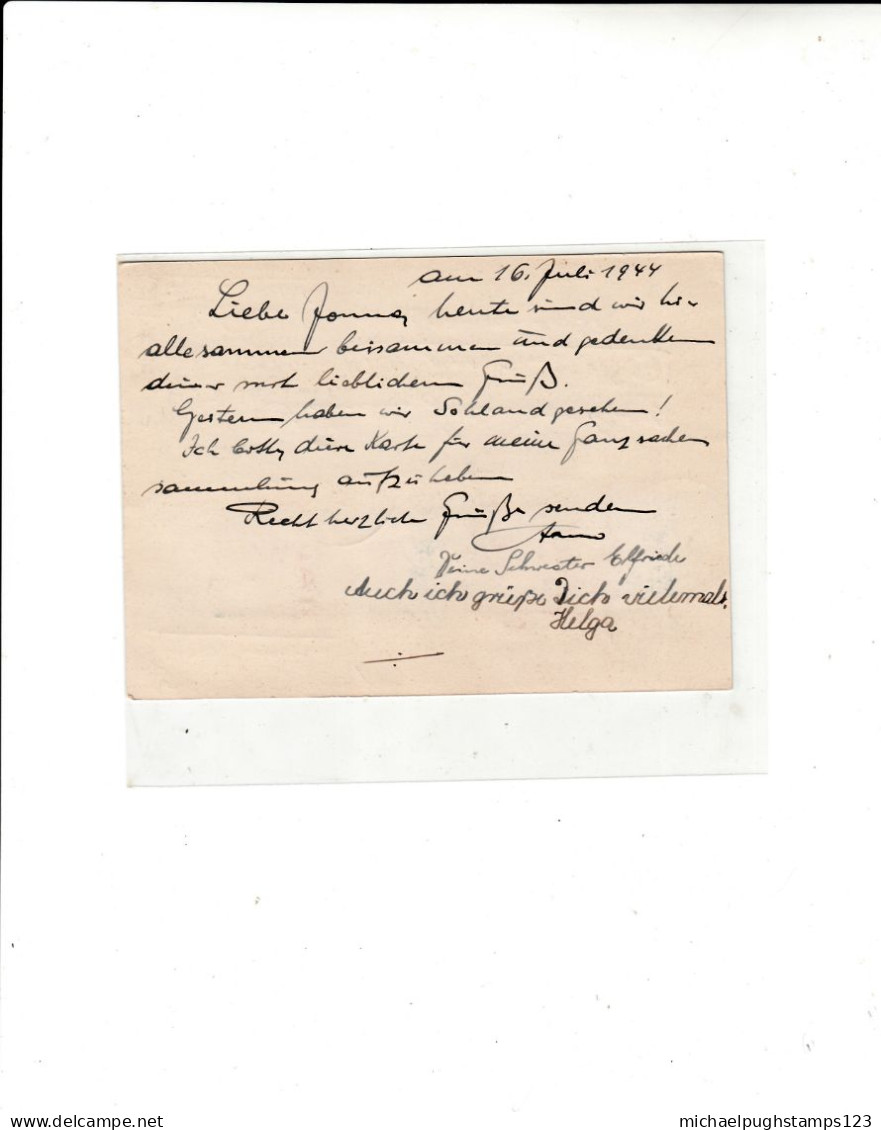 am 16. Juli 1944
Liebe heute sind wir hier
alle sammen beisammen und gedenken
deiner mit lieblichem Gruß.
Gestern haben wir Sohland gesehen!
Ich diese Karte für meine Ganzsachen
sammlung aufzuheben
Recht herzliche Grüße senden
Deine Schwester Elfriede
Auch ich grüße Dich vielemals.
Helga
michaelpughstamps123